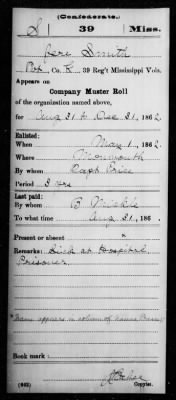 (Confederate.)
S 39 Miss.
Jere Smith
Pvt, Co. K, 39 Reg't Mississippi Vols.
Appears on
Company Muster Roll
of the organization named above,
for Aug 31 to Dec 31, 1862.
Enlisted:
When May 1, 1862.
Where Monmouth
By whom Capt Price
Period 3 yrs
Last paid:
By whom B
To what time Aug 31, 186 .
Present or absent *
Remarks: Sick at Hospital
Prisoner
*Name appears in column of names Present
Book mark:
(642) Copyist.